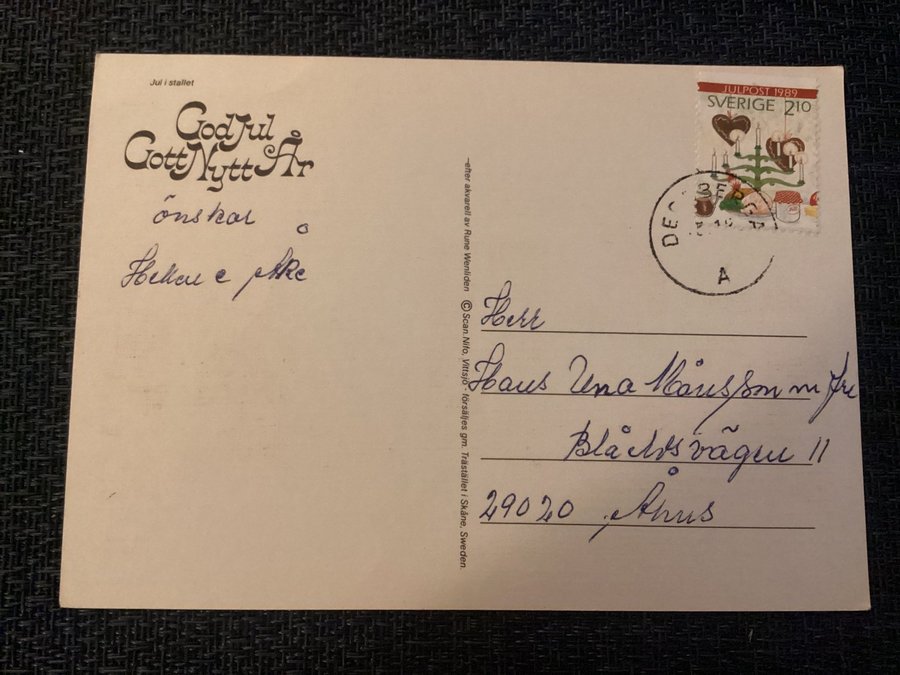 Jul i stallet
God Jul
Gott Nytt År
önskar
Åke
–efter akvarell av Rune Wenliden © Scan. Nifo, Vittsjö - försäljes gm. Trästället i Skåne, Sweden.
JULPOST 1989
SVERIGE 2,10
A
Herr
Hans Månsson m
11
29020 Åhus